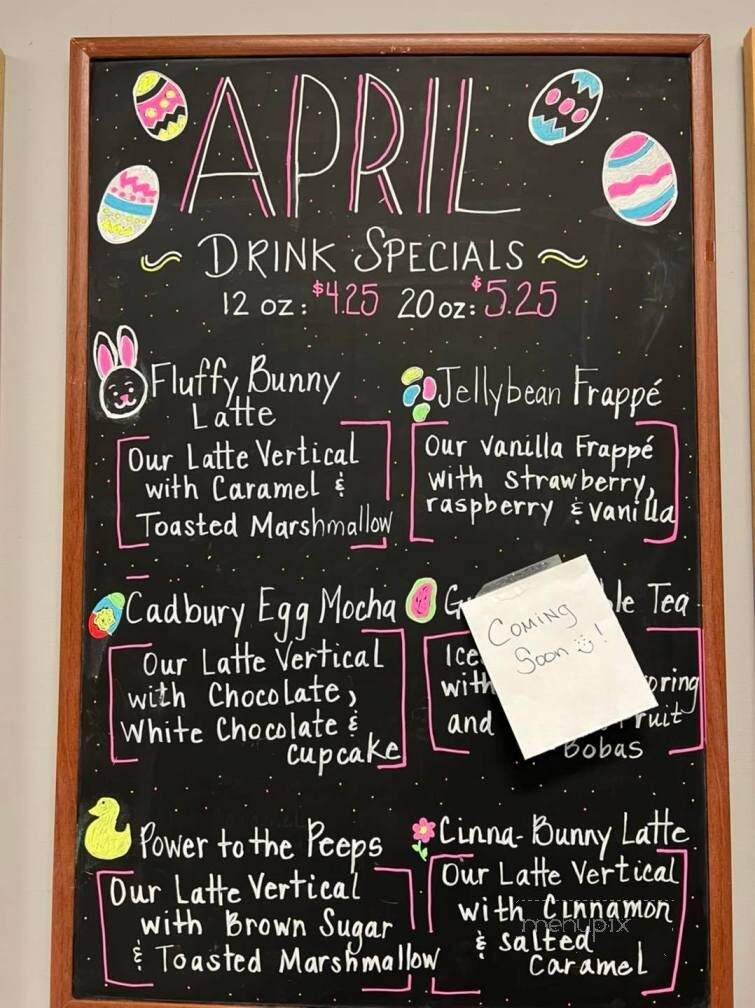 APRIL
~ DRINK SPECIALS ~
12 oz: $4.25 20 oz: $5.25
Fluffy Bunny
Latte
Our Latte Vertical
with Caramel &
Toasted Marshmallow
Jellybean Frappé
Our vanilla Frappé
with strawberry,
raspberry & vanilla
Cadbury Egg Mocha
Our Latte Vertical
with Chocolate,
White Chocolate &
cupcake
Tea
COMING
Soon !
with
and
Bobas
Power to the Peeps
Our Latte Vertical
with Brown Sugar
& Toasted Marshmallow
Cinna-Bunny Latte
Our Latte Vertical
with Cinnamon
& salted
Caramel
menupix